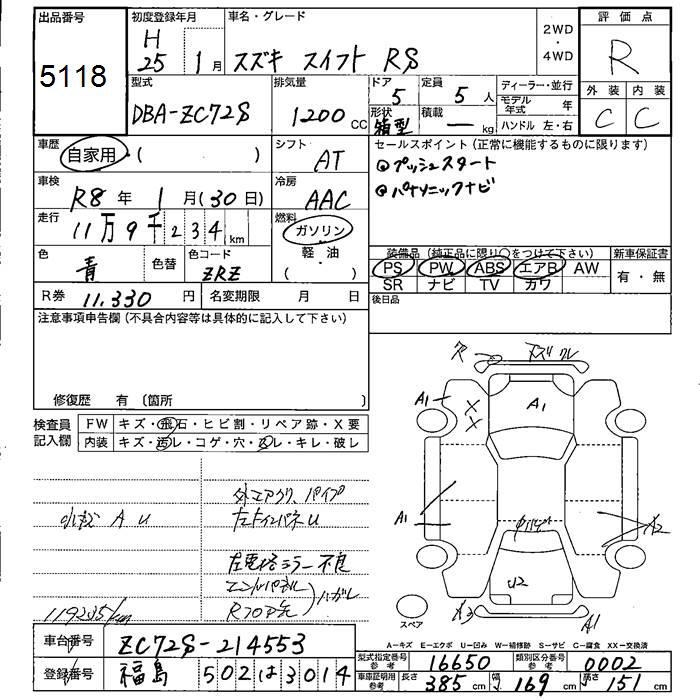 出品番号
5118
初度登録年月
H
25 1月
車名・グレード
スズキ スイフト RS
2WD
・
4WD
評価点
R
外装 内装
C C
型式
DBA-ZC72S
排気量
1200 CC
ドア
5
形状
箱型
定員
5 人
積載
— kg
ディーラー・並行
モデル年式 年
ハンドル 左・右
車歴
自家用・( )
シフト
AT
セールスポイント(正常に機能するものに限ります)
◎プッシュスタート
◎パナソニックナビ
車検
R8 年 1 月(30日)
冷房
AAC
走行
11万9千234km
燃料
ガソリン
軽・油
( )
色
青
色替
色コード
ZRZ
装備品(純正品に限り○をつけて下さい)
PS PW ABS エアB AW
SR ナビ TV カワ
新車保証書
有・無
R券 11.330 円
名変期限 月 日
後日品
注意事項申告欄(不具合内容等は具体的に記入して下さい)
修復歴 有 〔箇所 〕
検査員
記入欄
FW キズ・飛石・ヒビ割・リペア跡・X要
内装 キズ・汚レ・コゲ・穴・スレ・キレ・破レ
外エアクリ、パイプ
A U
左インパネU
左電格ミラー不良
エンドパネル
Rフロア先
ハガレ
119235km
A1
A1
A1
U2
X2
X2
A1
スペア
A-キズ E-エクボ U-凹み W-補修跡 S-サビ C-腐食 XX-交換済
車台番号 ZC72S-214553
登録番号 福島 502は3014
型式指定番号
参考
16650
類別区分番号
参考
0002
車庫証明用
参考
長さ 385cm 幅 169cm 高さ 151cm